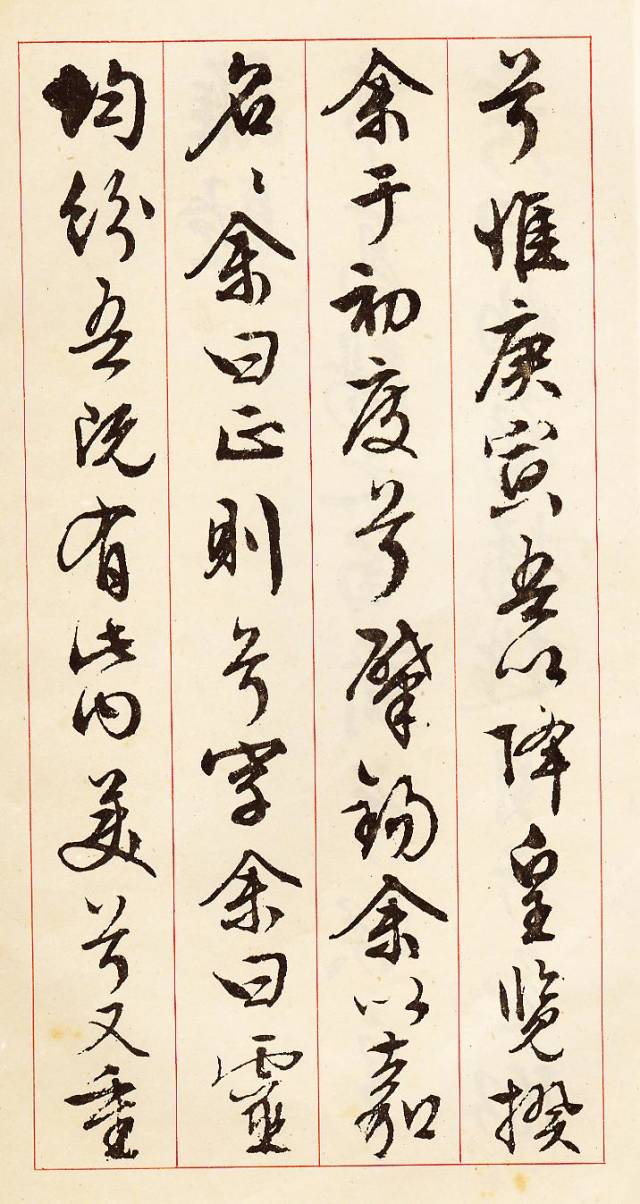 兮惟庚寅吾以降皇览揆
余于初度兮肇锡余以嘉
名〻余曰正则兮字余曰靈
均纷吾既有此内美兮又重